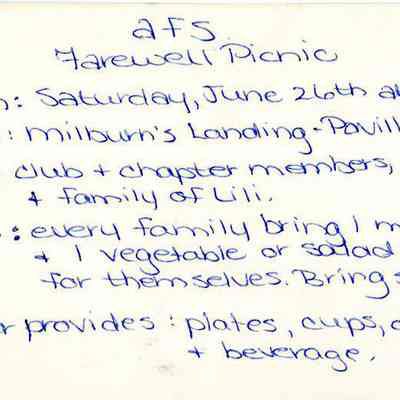 afs
Farewell Picnic
: Saturday, June 26th
: Milburn's Landing-
club + chapter members,
+ family of Lili.
: every family bring 1
+ 1 vegetable or salad
for themselves. Bring
provides : plates, cups,
+ beverage.